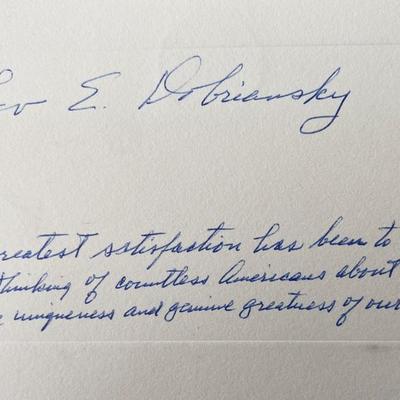 ev E. Dobriansky
reatest satisfaction has been to
thinking of countless Americans about
e uniqueness and genuine greatness of our